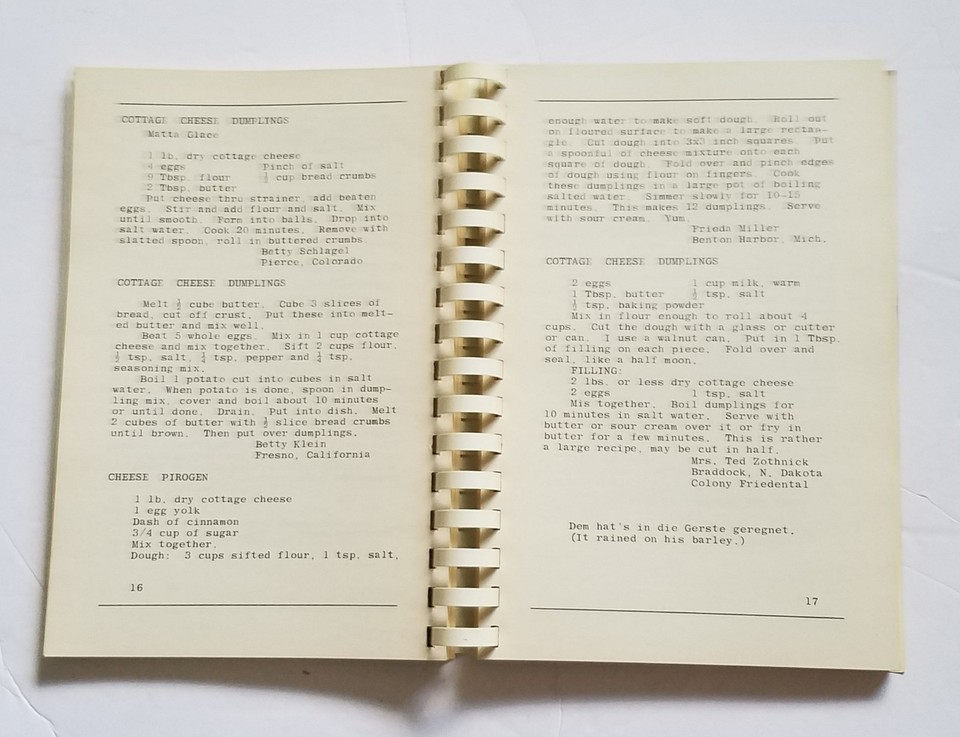 COTTAGE CHEESE DUMPLINGS
Matta Glace
1 lb. dry cottage cheese
4 eggs Pinch of salt
9 Tbsp. flour ½ cup bread crumbs
2 Tbsp. butter
Put cheese thru strainer, add beaten
eggs. Stir and add flour and salt. Mix
until smooth. Form into balls. Drop into
salt water. Cook 20 minutes. Remove with
slatted spoon, roll in buttered crumbs.
Betty Schlagel
Pierce, Colorado
COTTAGE CHEESE DUMPLINGS
Melt ½ cube butter. Cube 3 slices of
bread, cut off crust. Put these into melt-
ed butter and mix well.
Beat 5 whole eggs. Mix in 1 cup cottage
cheese and mix together. Sift 2 cups flour,
½ tsp. salt, ¼ tsp. pepper and ¼ tsp.
seasoning mix.
Boil 1 potato cut into cubes in salt
water. When potato is done, spoon in dump-
ling mix, cover and boil about 10 minutes
or until done. Drain. Put into dish. Melt
2 cubes of butter with ½ slice bread crumbs
until brown. Then put over dumplings.
Betty Klein
Fresno, California
CHEESE PIROGEN
1 lb. dry cottage cheese
1 egg yolk
Dash of cinnamon
3/4 cup of sugar
Mix together.
Dough: 3 cups sifted flour, 1 tsp. salt,
16
enough water to make soft dough. Roll out
on floured surface to make a large rectan-
gle. Cut dough into 3x3 inch squares. Put
a spoonful of cheese mixture onto each
square of dough. Fold over and pinch edges
of dough using flour on fingers. Cook
these dumplings in a large pot of boiling
salted water. Simmer slowly for 10-15
minutes. This makes 12 dumplings. Serve
with sour cream. Yum.
Frieda Miller
Benton Harbor, Mich.
COTTAGE CHEESE DUMPLINGS
2 eggs 1 cup milk, warm
1 Tbsp. butter ½ tsp. salt
½ tsp. baking powder
Mix in flour enough to roll about 4
cups. Cut the dough with a glass or cutter
or can. I use a walnut can. Put in 1 Tbsp.
of filling on each piece. Fold over and
seal, like a half moon.
FILLING:
2 lbs. or less dry cottage cheese
2 eggs 1 tsp. salt
Mis together. Boil dumplings for
10 minutes in salt water. Serve with
butter or sour cream over it or fry in
butter for a few minutes. This is rather
a large recipe, may be cut in half.
Mrs. Ted Zothnick
Braddock, N. Dakota
Colony Friedental
Dem hat's in die Gerste geregnet.
(It rained on his barley.)
17